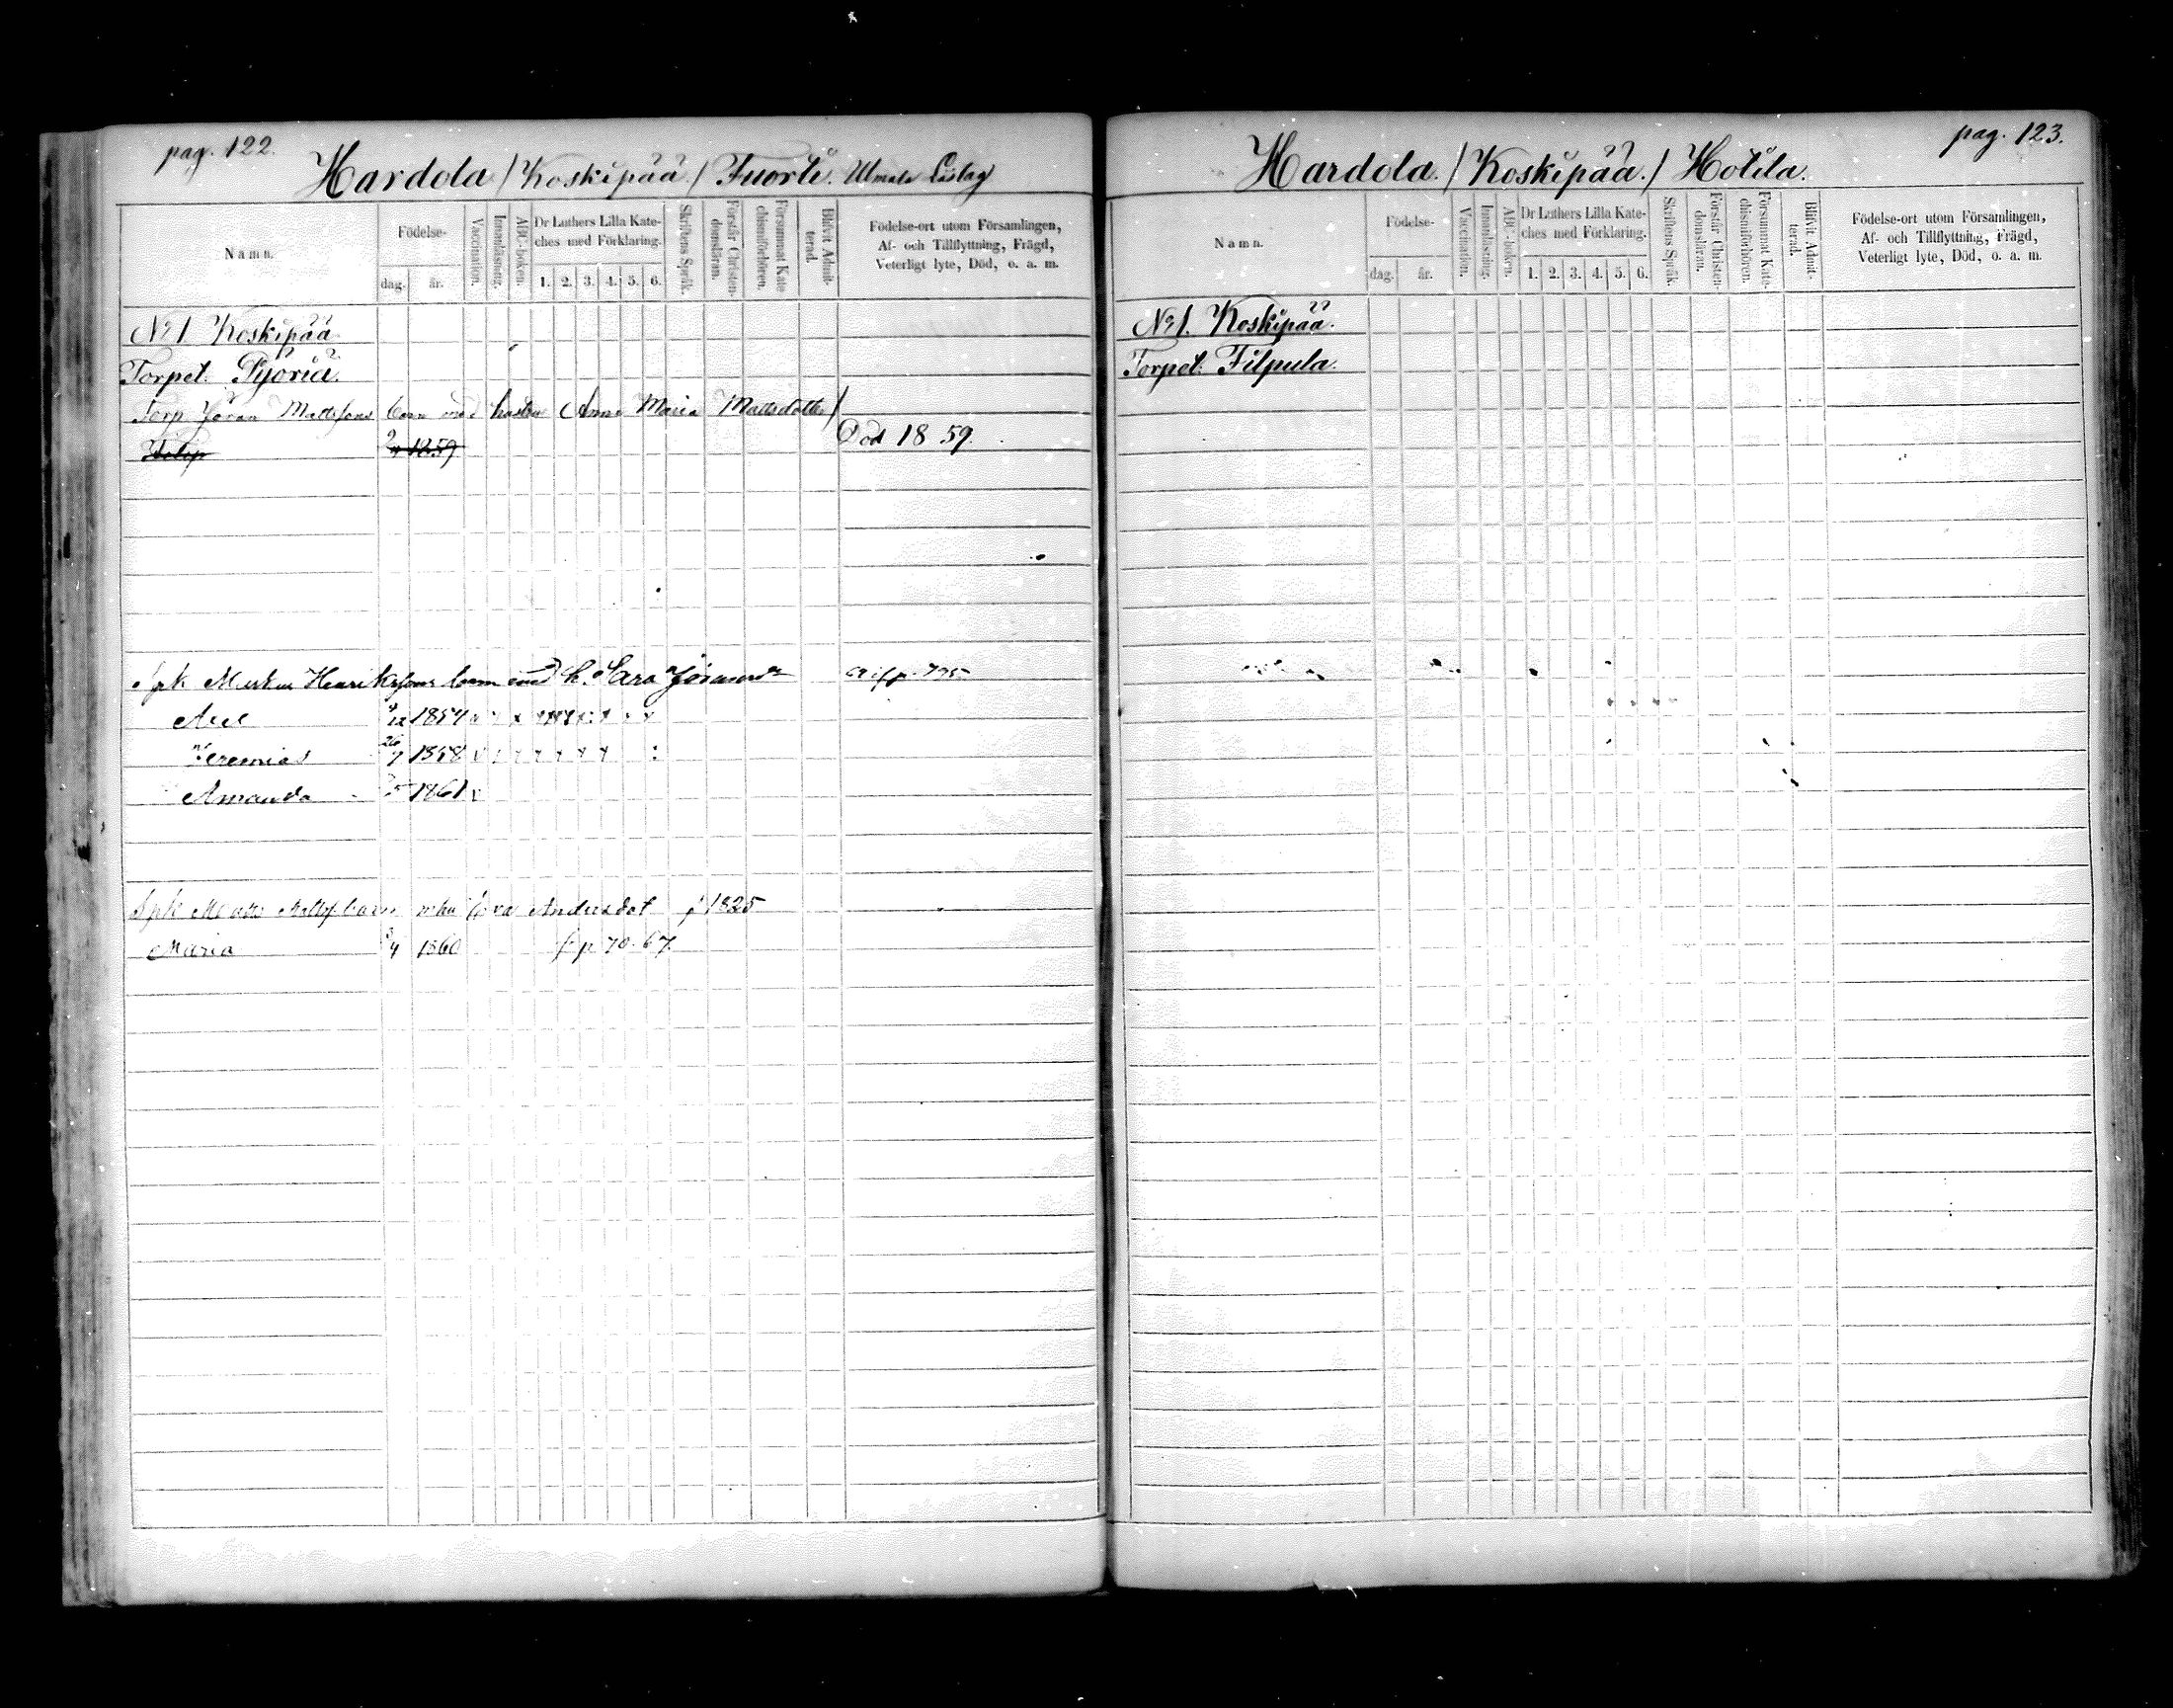 pag. 122.
Hardola / Koskipää. / Tuorli. Ulmala Läslag
Namn.
Födelse-
dag.
år.
Vaccination.
Innanläsning.
ABC-boken.
Dr Luthers Lilla Kate-
ches med Förklaring.
1. 2. 3. 4. 5. 6.
Skriftens Språk.
Förstår Christen-
domsläran.
Försummat Kate
chismiförhören.
Blifvit Admit-
terad.
Födelse-ort utom Församlingen,
Af- och Tillflyttning, Frägd,
Veterligt lyte, Död, o. a. m.
No 1 Koskipää
Torpet. Pyöriä.
Torp Jöran Mattssons barn med hustru Anna Maria Mattsdotter /
1859 Död 1859.
Spk Markus Henrikssons barn med h. Sara
Axel 4/12 1854
Jeremias 26/7 1858
Amanda 1861
Spk Matts barn Andersdot f 1825
Maria 3/4 1860 f p 70. 67.
pag. 123.
Hardola. / Koskipää. / Hotila.
Namn.
Födelse-
dag.
år.
Vaccination.
Innanläsning.
ABC-boken.
Dr Luthers Lilla Kate-
ches med Förklaring.
1. 2. 3. 4. 5. 6.
Skriftens Språk.
Förstår Christen-
domsläran.
Försummat Kate-
chismiförhören.
Blifvit Admit-
terad.
Födelse-ort utom Församlingen,
Af- och Tillflyttning, Frägd,
Veterligt lyte, Död, o. a. m.
No 1. Koskipää.
Torpet. Filpula.